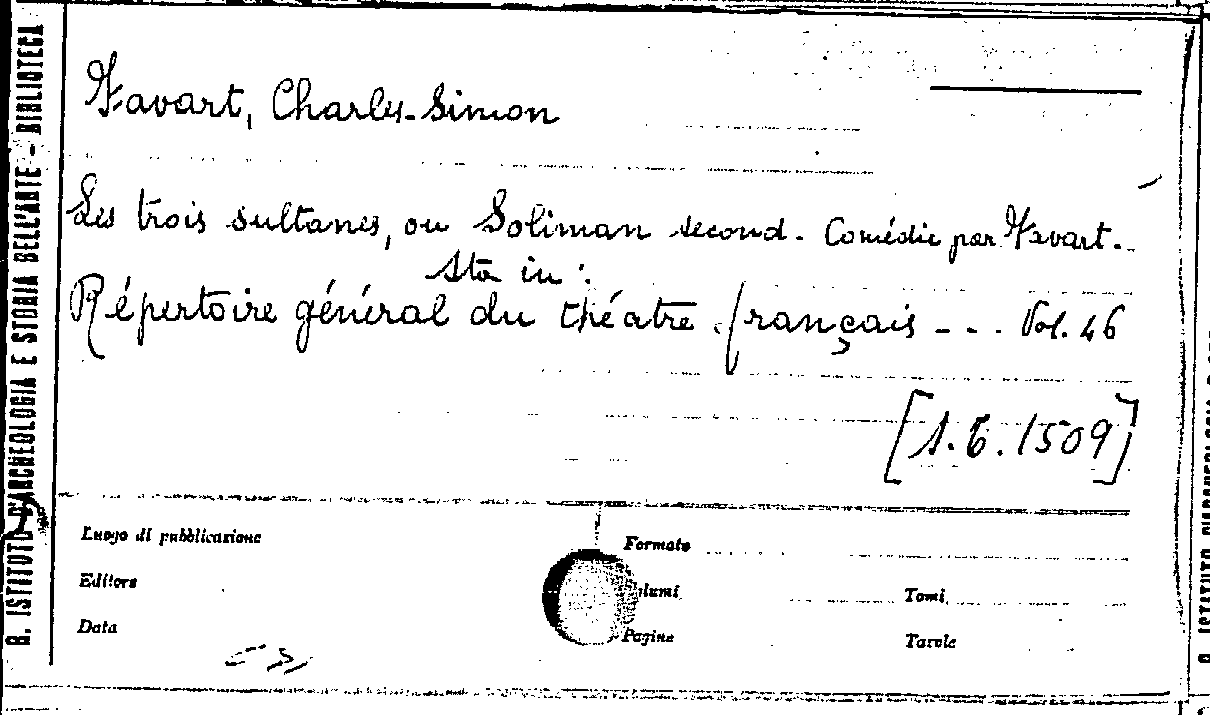 R. ISTITUTO D'ARCHEOLOGIA E STORIA DELL'ARTE - BIBLIOTECA
Favart, Charles-Simon
Les trois sultanes, ou Soliman second. Comédie par Favart.
Sta in:
Répertoire général du théatre français - - - Vol. 46
[S.T. 1509]
Luogo di pubblicazione
Editore
Data
Formato
Volumi
Pagine
Tomi
Tavole